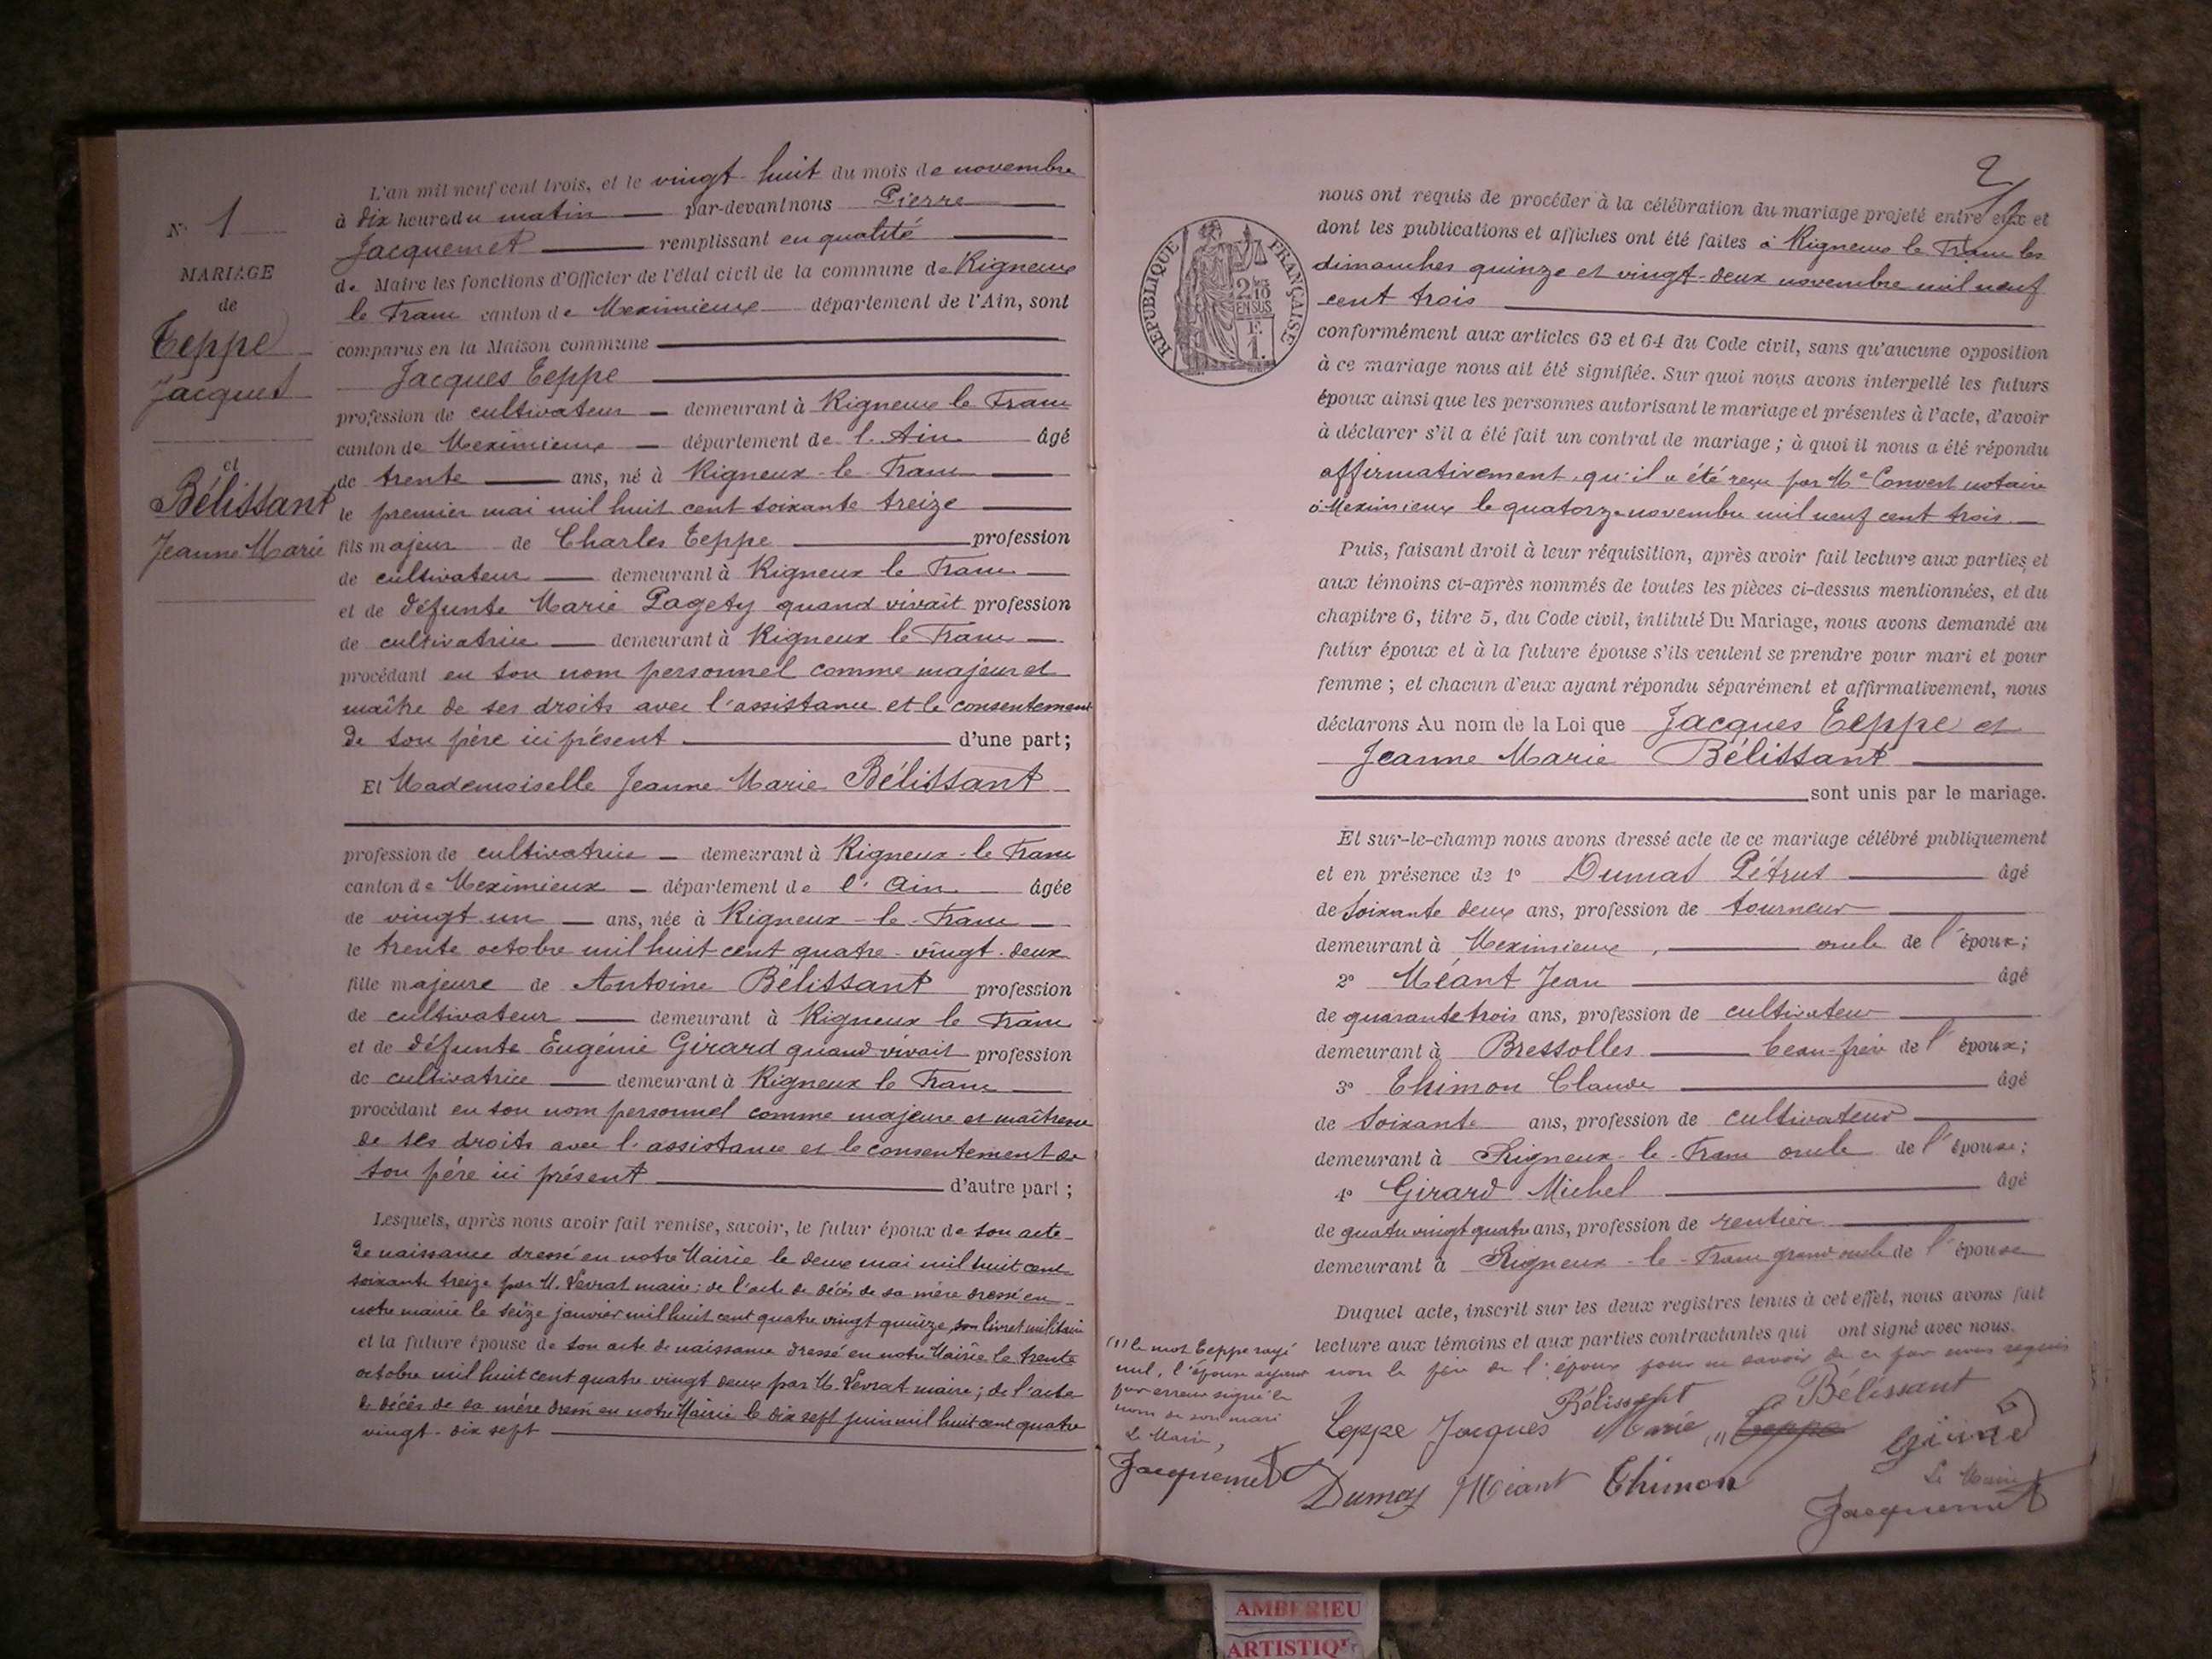 L'an mil neuf cent trois, et le vingt-huit du mois de novembre
à dix heures du matin par-devant nous Pierre
Jacquemet remplissant en qualité
de Maire les fonctions d'Officier de l'état civil de la commune de Rigneux
le Franc canton de Meximieux département de l'Ain, sont
comparus en la Maison commune
Jacques Teppe
profession de cultivateur demeurant à Rigneux le Franc
canton de Meximieux département de l'Ain âgé
de trente ans, né à Rigneux-le-Franc
le premier mai mil huit cent soixante treize
fils majeur de Charles Teppe profession
de cultivateur demeurant à Rigneux le Franc
et de défunte Marie Pagety quand vivait profession
de cultivatrice demeurant à Rigneux le Franc
procédant en son nom personnel comme majeur et
maître de ses droits avec l'assistance et le consentement
de son père ici présent d'une part;
Et Mademoiselle Jeanne Marie Bélissant
profession de cultivatrice demeurant à Rigneux-le Franc
canton de Meximieux département de l'Ain âgée
de vingt un ans, née à Rigneux-le-Franc
le trente octobre mil huit cent quatre-vingt-deux
fille majeure de Antoine Bélissant profession
de cultivateur demeurant à Rigneux le Franc
et de défunte Eugénie Girard quand vivait profession
de cultivatrice demeurant à Rigneux le Franc
procédant en son nom personnel comme majeure et maîtresse
de ses droits avec l'assistance et le consentement de
son père ici présent d'autre part;
Lesquels, après nous avoir fait remise, savoir, le futur époux de son acte
de naissance dressé en notre Mairie le deux mai mil huit cent
soixante treize par M. Levrat maire; de l'acte de décès de sa mère dressé en
notre mairie le seize janvier mil huit cent quatre vingt quinze, son livret militaire
et la future épouse de son acte de naissance dressé en notre Mairie le trente
octobre mil huit cent quatre vingt deux par M. Levrat maire; de l'acte
de décès de sa mère dressé en notre Mairie le dix sept juin mil huit cent quatre
vingt-dix sept
N° 1
MARIAGE
de
Teppe
Jacques
et
Bélissant
Jeanne Marie
2
nous ont requis de procéder à la célébration du mariage projeté entre eux et
dont les publications et affiches ont été faites à Rigneux le Franc les
dimanches quinze et vingt-deux novembre mil neuf
cent trois
RÉPUBLIQUE FRANÇAISE
2/10
EN SUS
1 F.
conformément aux articles 63 et 64 du Code civil, sans qu'aucune opposition
à ce mariage nous ait été signifiée. Sur quoi nous avons interpellé les futurs
époux ainsi que les personnes autorisant le mariage et présentes à l'acte, d'avoir
à déclarer s'il a été fait un contrat de mariage; à quoi il nous a été répondu
affirmativement, qu'il a été reçu par Me Convert notaire
à Meximieux le quatorze novembre mil neuf cent trois.
Puis, faisant droit à leur réquisition, après avoir fait lecture aux parties et
aux témoins ci-après nommés de toutes les pièces ci-dessus mentionnées, et du
chapitre 6, titre 5, du Code civil, intitulé Du Mariage, nous avons demandé au
futur époux et à la future épouse s'ils veulent se prendre pour mari et pour
femme; et chacun d'eux ayant répondu séparément et affirmativement, nous
déclarons Au nom de la Loi que Jacques Teppe et
Jeanne Marie Bélissant
sont unis par le mariage.
Et sur-le-champ nous avons dressé acte de ce mariage célébré publiquement
et en présence de 1° Dumas Pétrus âgé
de soixante deux ans, profession de tourneur
demeurant à Meximieux, oncle de l'époux;
2° Méant Jean âgé
de quarante trois ans, profession de cultivateur
demeurant à Bressolles beau-frère de l'époux;
3° Thimon Claude âgé
de soixante ans, profession de cultivateur
demeurant à Rigneux-le-Franc oncle de l'épouse;
4° Girard Michel âgé
de quatre vingt quatre ans, profession de rentier
demeurant à Rigneux-le-Franc grand oncle de l'épouse
Duquel acte, inscrit sur les deux registres tenus à cet effet, nous avons fait
lecture aux témoins et aux parties contractantes qui ont signé avec nous.
non le père de l'époux pour ne savoir de ce par nous requis
(1) le mot Teppe rayé
nul, l'épouse ayant
par erreur signé le
nom de son mari
Le Maire,
Jacquemet
Teppe Jacques Bélissent Marie (1) Teppe Bélissant
Girard
Dumas Méant Thimon
Le Maire
Jacquemet
AMBERIEU
ARTISTIQUE